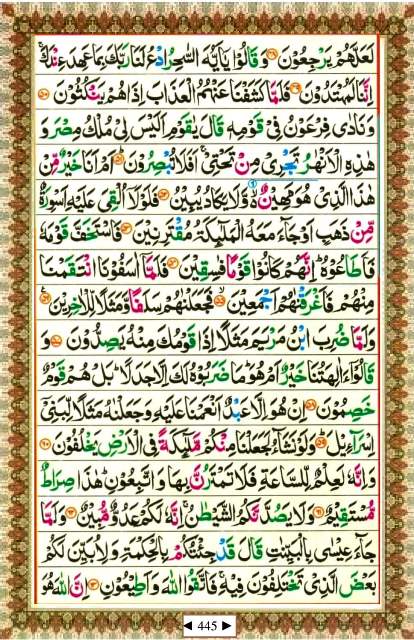 لَعَلَّهُمْ يَرْجِعُوْنَ ﴿۴۸﴾ وَ قَالُوْا يٰۤاَيُّهَ السّٰحِرُ ادْعُ لَنَا رَبَّكَ بِمَا عَهِدَ عِنْدَكَ ۚ
اِنَّنَا لَمُهْتَدُوْنَ ﴿۴۹﴾ فَلَمَّا كَشَفْنَا عَنْهُمُ الْعَذَابَ اِذَا هُمْ يَنْكُثُوْنَ ﴿۵۰﴾
وَ نَادٰى فِرْعَوْنُ فِيْ قَوْمِهٖ قَالَ يٰقَوْمِ اَلَيْسَ لِيْ مُلْكُ مِصْرَ وَ
هٰذِهِ الْاَنْهٰرُ تَجْرِيْ مِنْ تَحْتِيْ ۚ اَفَلَا تُبْصِرُوْنَ ﴿۵۱﴾ اَمْ اَنَا خَيْرٌ مِّنْ
هٰذَا الَّذِيْ هُوَ مَهِيْنٌ ۙ۬ وَّ لَا يَكَادُ يُبِيْنُ ﴿۵۲﴾ فَلَوْلَاۤ اُلْقِيَ عَلَيْهِ اَسْوِرَةٌ
مِّنْ ذَهَبٍ اَوْ جَآءَ مَعَهُ الْمَلٰٓئِكَةُ مُقْتَرِنِيْنَ ﴿۵۳﴾ فَاسْتَخَفَّ قَوْمَهٗ
فَاَطَاعُوْهُ ؕ اِنَّهُمْ كَانُوْا قَوْمًا فٰسِقِيْنَ ﴿۵۴﴾ فَلَمَّاۤ اٰسَفُوْنَا انْتَقَمْنَا
مِنْهُمْ فَاَغْرَقْنٰهُمْ اَجْمَعِيْنَ ﴿۵۵﴾ فَجَعَلْنٰهُمْ سَلَفًا وَّ مَثَلًا لِّلْاٰخِرِيْنَ ﴿۵۶﴾
وَ لَمَّا ضُرِبَ ابْنُ مَرْيَمَ مَثَلًا اِذَا قَوْمُكَ مِنْهُ يَصِدُّوْنَ ﴿۵۷﴾ وَ
قَالُوْۤا ءَاٰلِهَتُنَا خَيْرٌ اَمْ هُوَ ؕ مَا ضَرَبُوْهُ لَكَ اِلَّا جَدَلًا ؕ بَلْ هُمْ قَوْمٌ
خَصِمُوْنَ ﴿۵۸﴾ اِنْ هُوَ اِلَّا عَبْدٌ اَنْعَمْنَا عَلَيْهِ وَ جَعَلْنٰهُ مَثَلًا لِّبَنِيْۤ
اِسْرَآءِيْلَ ﴿۵۹﴾ وَ لَوْ نَشَآءُ لَجَعَلْنَا مِنْكُمْ مَّلٰٓئِكَةً فِي الْاَرْضِ يَخْلُفُوْنَ ﴿۶۰﴾
وَ اِنَّهٗ لَعِلْمٌ لِّلسَّاعَةِ فَلَا تَمْتَرُنَّ بِهَا وَ اتَّبِعُوْنِ ؕ هٰذَا صِرَاطٌ
مُّسْتَقِيْمٌ ﴿۶۱﴾ وَ لَا يَصُدَّنَّكُمُ الشَّيْطٰنُ ۚ اِنَّهٗ لَكُمْ عَدُوٌّ مُّبِيْنٌ ﴿۶۲﴾ وَ لَمَّا
جَآءَ عِيْسٰى بِالْبَيِّنٰتِ قَالَ قَدْ جِئْتُكُمْ بِالْحِكْمَةِ وَ لِاُبَيِّنَ لَكُمْ
بَعْضَ الَّذِيْ تَخْتَلِفُوْنَ فِيْهِ ۚ فَاتَّقُوا اللّٰهَ وَ اَطِيْعُوْنِ ﴿۶۳﴾ اِنَّ اللّٰهَ هُوَ
◄ 445 ►